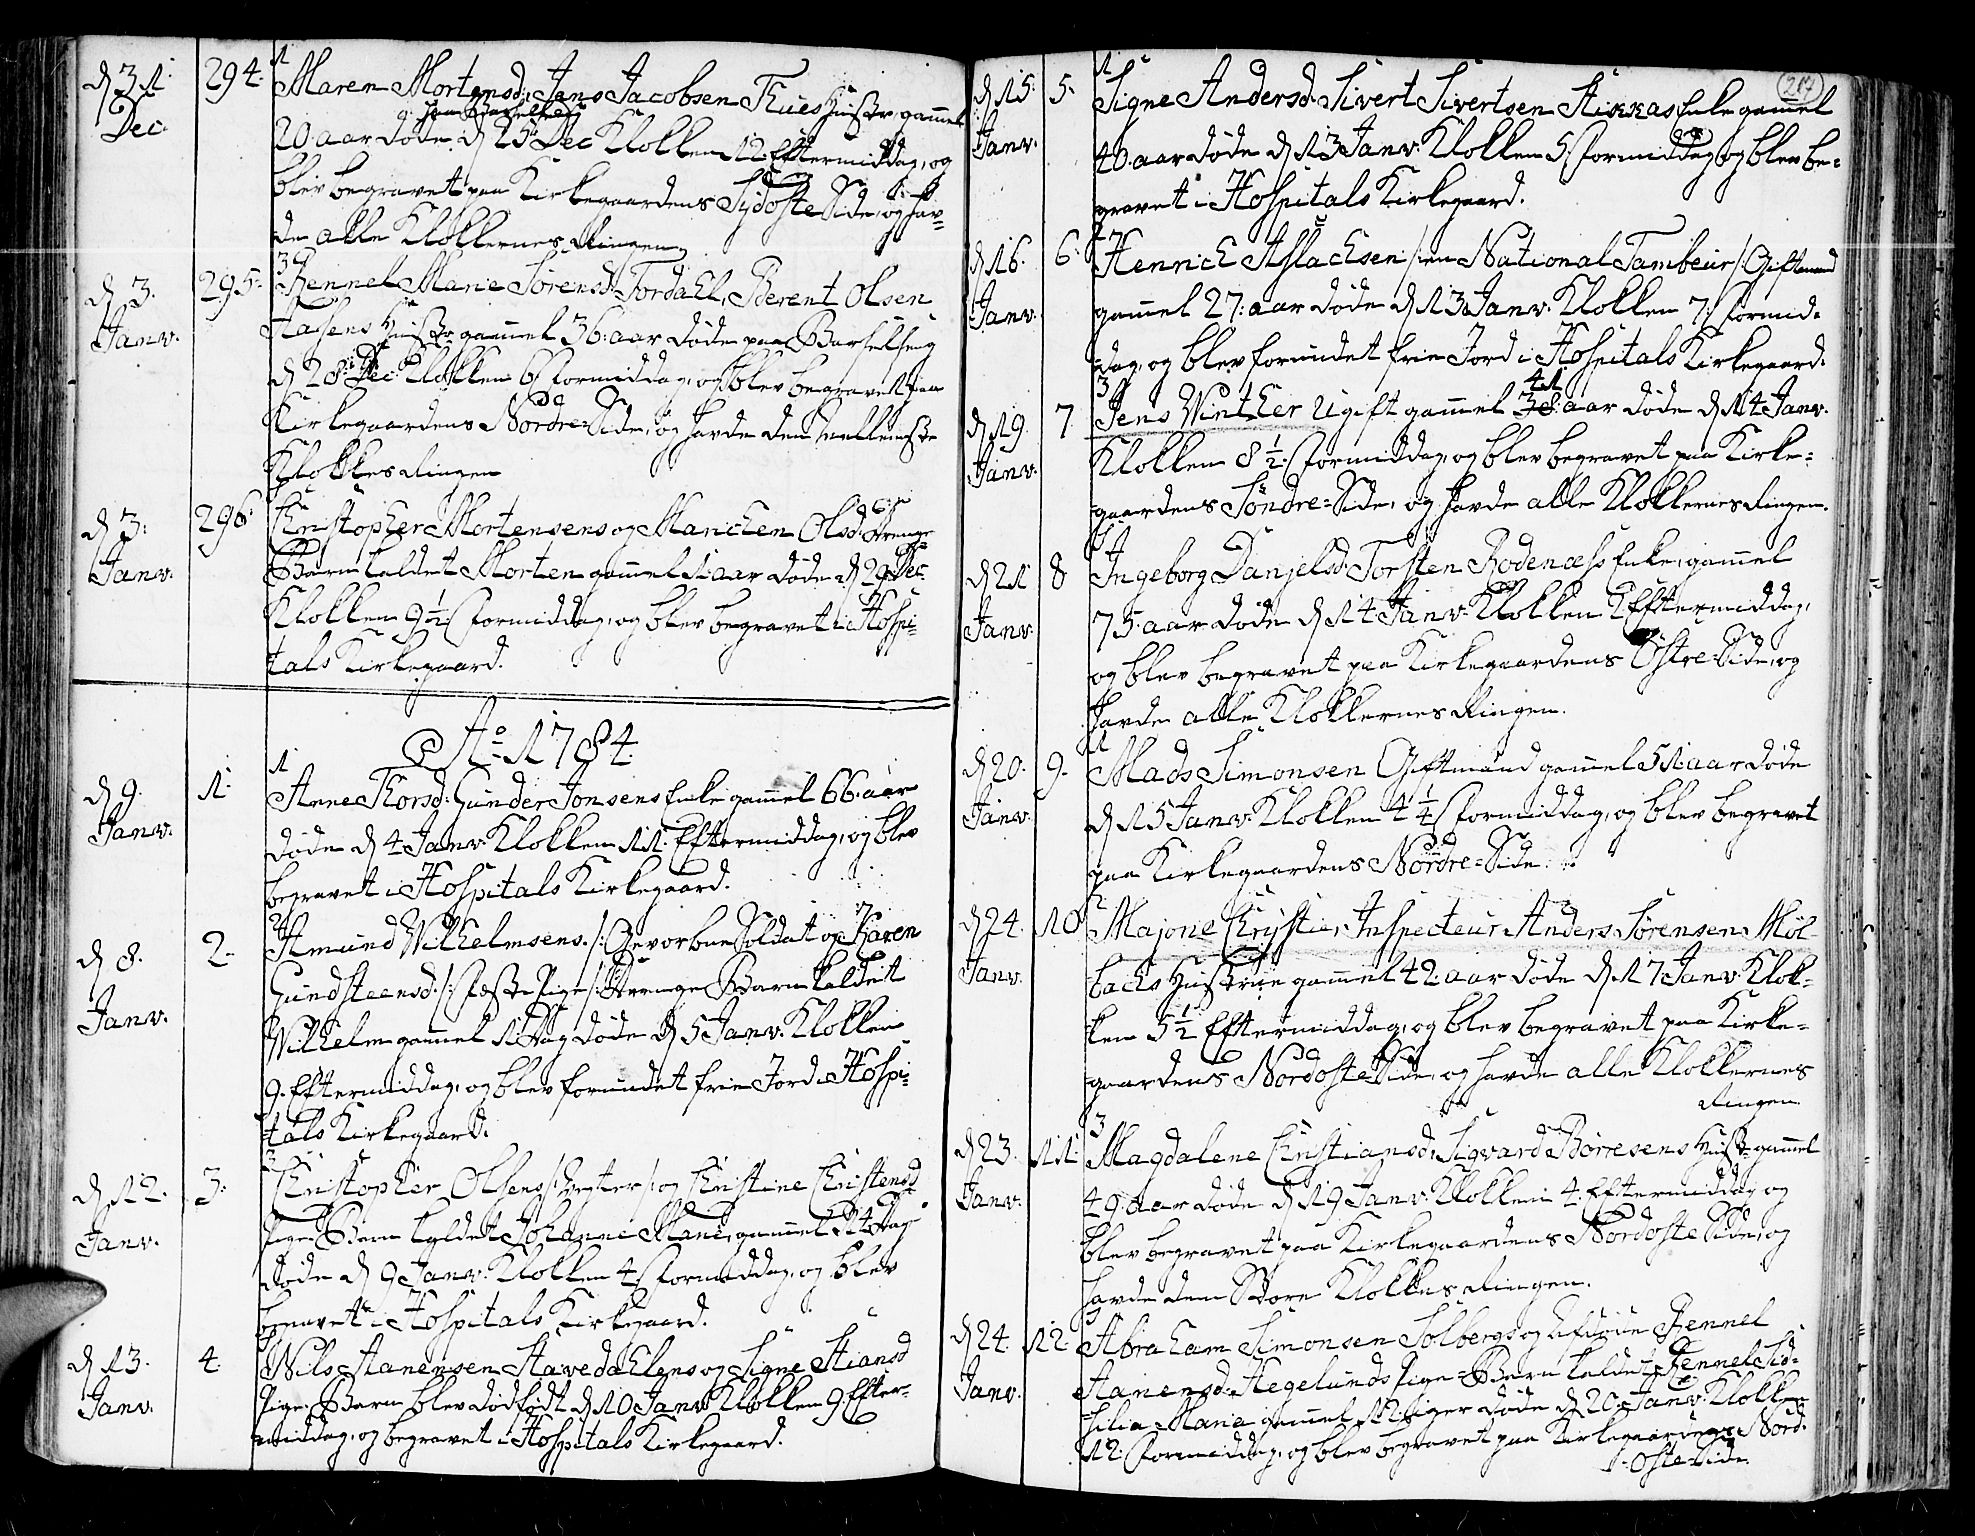 d 31. Dec. 294. 1
Maren Mortensd: Jens Jacobsen Thues Hustr. gammel
paa Barselseng
20 aar døde d 25 Dec Klokken 12. Eftermiddag, og
blev begravet paa Kirkegaardens Sydoste Side, og hav-
de alle Klokkernes Ringen,
d 3. Janv. 295. 3
Pennel Marie Sørensd: Tordahl, Berent Olsen
Hustr. gammel 36. aar døde paa Barselseng
d 28 Dec: Klokken 6 formiddag, og blev begravet paa
Kirkegaardens Nordre-Side, og havde den mellemste
Klokkes Ringen
d 3. Janv. 296.
Christopher Mortensens og Marichen Olsd: Drenge-
Barn kaldet Morten gammel 1 aar døde d 29 Dec.
Klokken 9½ formiddag, og blev begravet i Hospi-
tals Kirkegaard.
Ao 1784.
d 9. Janv. 1. 1
Anne Thorsd: Gunder Jonsens Enke gammel 66. aar
døde d 4 Janv. Klokken 11. Eftermiddag, og blev
begravet i Hospitals Kirkegaard.
d 8. Janv. 2. 2
Amund Wilhelmsens /: Gevorbne Soldat og Karen
Gundsteensd: /: Pige :/ Drenge Barn kaldet
Wilhelm gammel 1 Dag døde d 5 Janv. Klokken
9. Eftermiddag, og blev forundet frie Jord i Hospi-
tals Kirkegaard.
d 12. Janv. 3. 3
Christopher Olsens /: Vegter :/ og Christine Christensd
Pige-Barn kaldet Johanne Marie, gammel 14 Dag
døde d 9 Janv. Klokken 4 formiddag, og blev
begravet i Hospitals Kirkegaard.
d 13. Janv. 4.
Nils Hanensen Hawedahlens og Signe Hansd
Pige-Barn blev dødfødt d 10 Janv. Klokken 9 Efter-
middag, og begravet i Hospitals Kirkegaard.
217
d 15. Janv. 5. 1
Signe Andersd: Sivert Sivertsen Enke gammel
40. aar døde d 13 Janv: Klokken 5. formiddag og blev be-
gravet i Hospitals Kirkegaard.
d 16. Janv. 6. 2
Henrich Aslachsen /: en National Tambeur :/ Giftmand
gammel 27. aar døde d 13 Janv. Klokken 7. formid-
dag, og blev forundet frie Jord i Hospitals Kirkegaard.
d 19. Janv. 7 3
41
Jens Winther Ugift gammel 38. aar døde d 14 Janv.
Klokken 8½. formiddag, og blev begravet paa Kirke-
gaardens Søndre-Side, og havde alle Klokkernes Ringen.
d 21 Janv. 8
Ingeborg Danjelsd: Torsten Rodenæss Enke, gammel
75. aar døde d 14 Janv. Klokken 2 Eftermiddag,
og blev begravet paa Kirkegaardens Østre-Side, og
havde alle Klokkernes Ringen.
d 20. Janv. 9. 1
Mads Simonsen Giftmand gammel 51. aar døde
d 15 Janv. Klokken 4¼ formiddag, og blev begravet
paa Kirkegaardens Nordre-Side.
d 24. Janv. 10 2
Majone Chrystie, Inspecteur Anders Sørensen Møl-
bachs Hustrue gammel 42. aar døde d 17 Janv. Klok-
ken 5½ Eftermiddag, og blev begravet paa Kirke-
gaardens Nordoste Side, og havde alle Klokkernes
Ringen.
d 23. Janv. 11. 3
Magdalene Christiansd: Sigvard Børresens Hustr. gammel
49. aar døde d 19 Janv. Klokken 4. Eftermiddag og
blev begravet paa Kirkegaardens Nordoste Side, og
havde den Store Klokkes Ringen.
d 24. Janv. 12. 3
Abraham Simonsen Solbergs og Afdøde Pennel
Hanensd: Hegelunds Pige-Barn kaldet Pennel Sid-
silia Marie gammel 12. uger døde d 20. Janv. Klokken
12. formiddag, og blev begravet paa Kirkegaardens Nord-
Oste-Side.